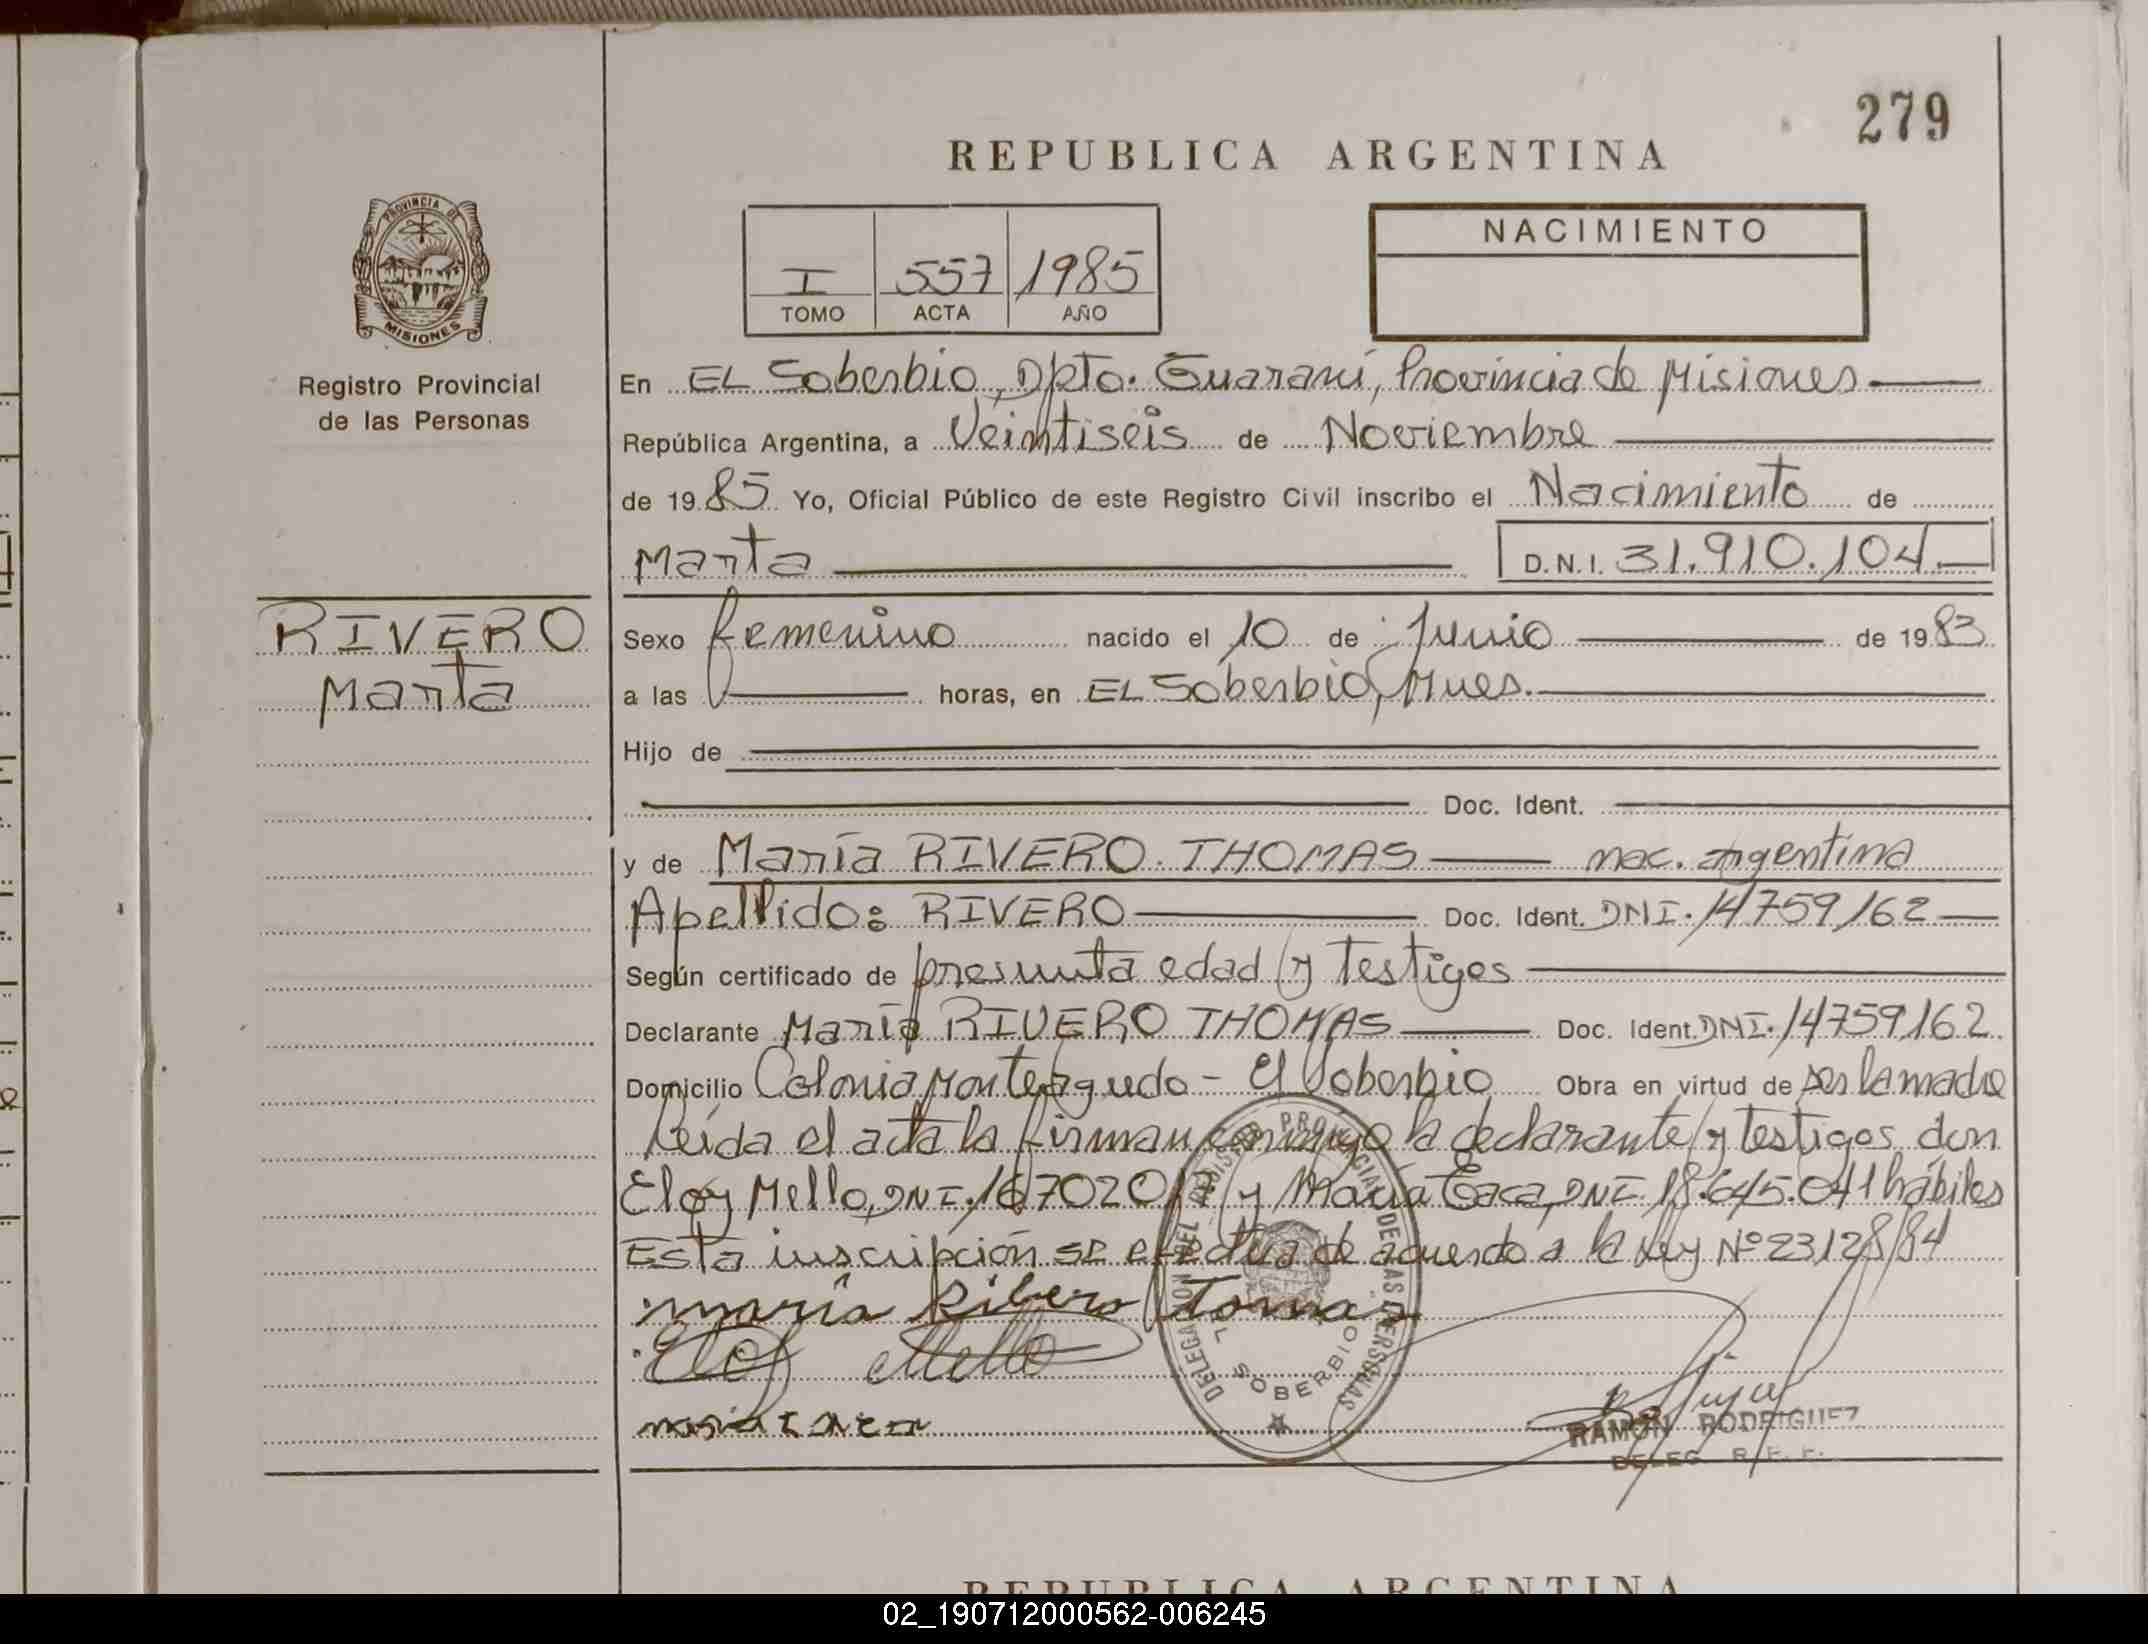 279
REPUBLICA ARGENTINA
PROVINCIA DE MISIONES
Registro Provincial
de las Personas
I 557 1985
TOMO ACTA AÑO
NACIMIENTO
En EL Soberbio, Dpto. Guaraní, Provincia de Misiones
República Argentina, a Veintiseis de Noviembre
de 1985 Yo, Oficial Público de este Registro Civil inscribo el Nacimiento de
Marta D.N.I. 31.910.104
RIVERO
Marta
Sexo femenino nacido el 10 de Junio de 1983
a las horas, en EL Soberbio, Mnes.
Hijo de
Doc. Ident.
y de María RIVERO THOMAS nac. argentina
Apellido: RIVERO Doc. Ident. DNI. 14759162
Según certificado de presunta edad y Testigos
Declarante María RIVERO THOMAS Doc. Ident. DNI. 14759162
Domicilio Colonia Monteagudo - El Soberbio Obra en virtud de ser la madre
Leída el acta la firman conmigo la declarante y testigos don
Eloy Mello, DNI. y María DNI. 18.645.041 hábiles
Esta inscripción se efectúa de acuerdo a la Ley Nº 23128/84
maria Ribero Tomas
Eloy Mello
DELEGACION DEL REGISTRO PROVINCIAL DE LAS PERSONAS
EL SOBERBIO
RAMON RODRIGUEZ
DELEG. R. P. P.
REPUBLICA ARGENTINA
02_190712000562-006245